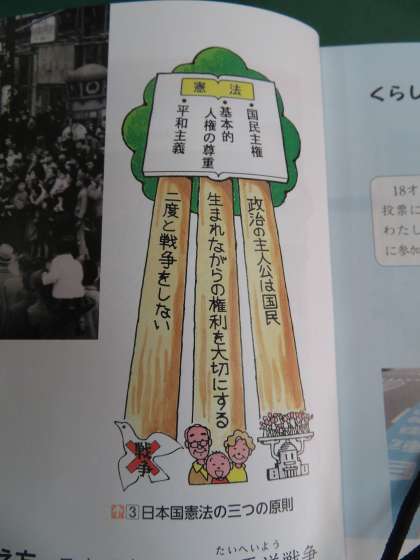 憲法
・国民主権
・基本的
人権の尊重
・平和主義
政治の主人公は国民
生まれながらの権利を大切にする
二度と戦争をしない
戦争
小 3 日本国憲法の三つの原則
たいへいよう
洋戦争
え方
くらし
18才
投票に
わたし
に参加